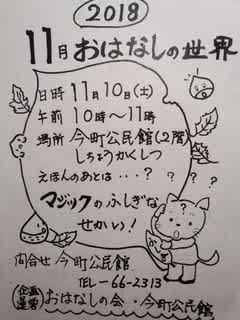 2018
11月おはなしの世界
日時 11月10日(土)
午前 10時～11時
場所 今町公民館(2階)
しちょうかくしつ
えほんのあとは...? ? ? ?
マジックのふしぎな
せかい!
問合せ 今町公民館
TEL-66-2313
(企画運営)おはなしの会・今町公民館